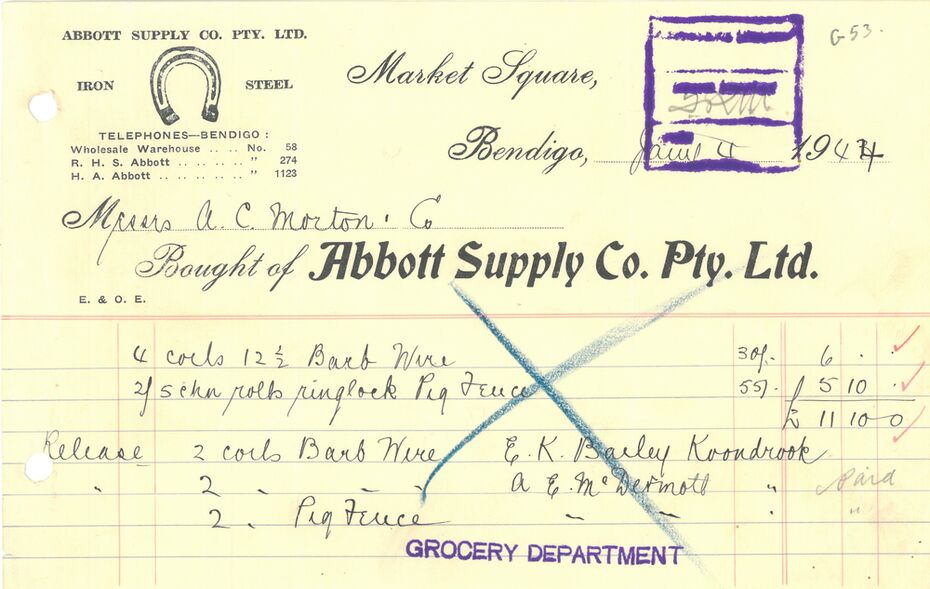 ABBOTT SUPPLY CO. PTY. LTD.
IRON STEEL
TELEPHONES—BENDIGO :
Wholesale Warehouse .. .. No. 58
R. H. S. Abbott .. .. .. .. " 274
H. A. Abbott .. .. .. .. .. " 1123
G-53.
Market Square,
Bendigo, 4 1944
Messrs A. C. Morton & Co
Bought of Abbott Supply Co. Pty. Ltd.
E. & O. E.
4 coils 12½ Barb Wire 30/- 6 . .
2/5 chn rolls ringlock Pig Fence 55/- 5 10 .
£ 11 10 0
Release 2 coils Barb Wire E. K. Bailey Koondrook
" 2 " " " A E. McDermott " Paid
2 " Pig Fence " " " "
GROCERY DEPARTMENT